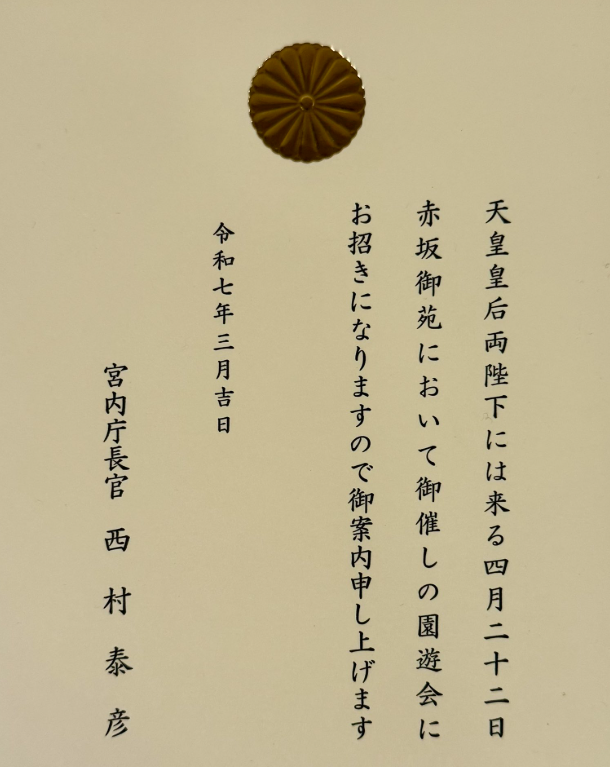 天皇皇后両陛下には来る四月二十二日
赤坂御苑において御催しの園遊会に
お招きになりますので御案内申し上げます
令和七年三月吉日
宮内庁長官 西村泰彦